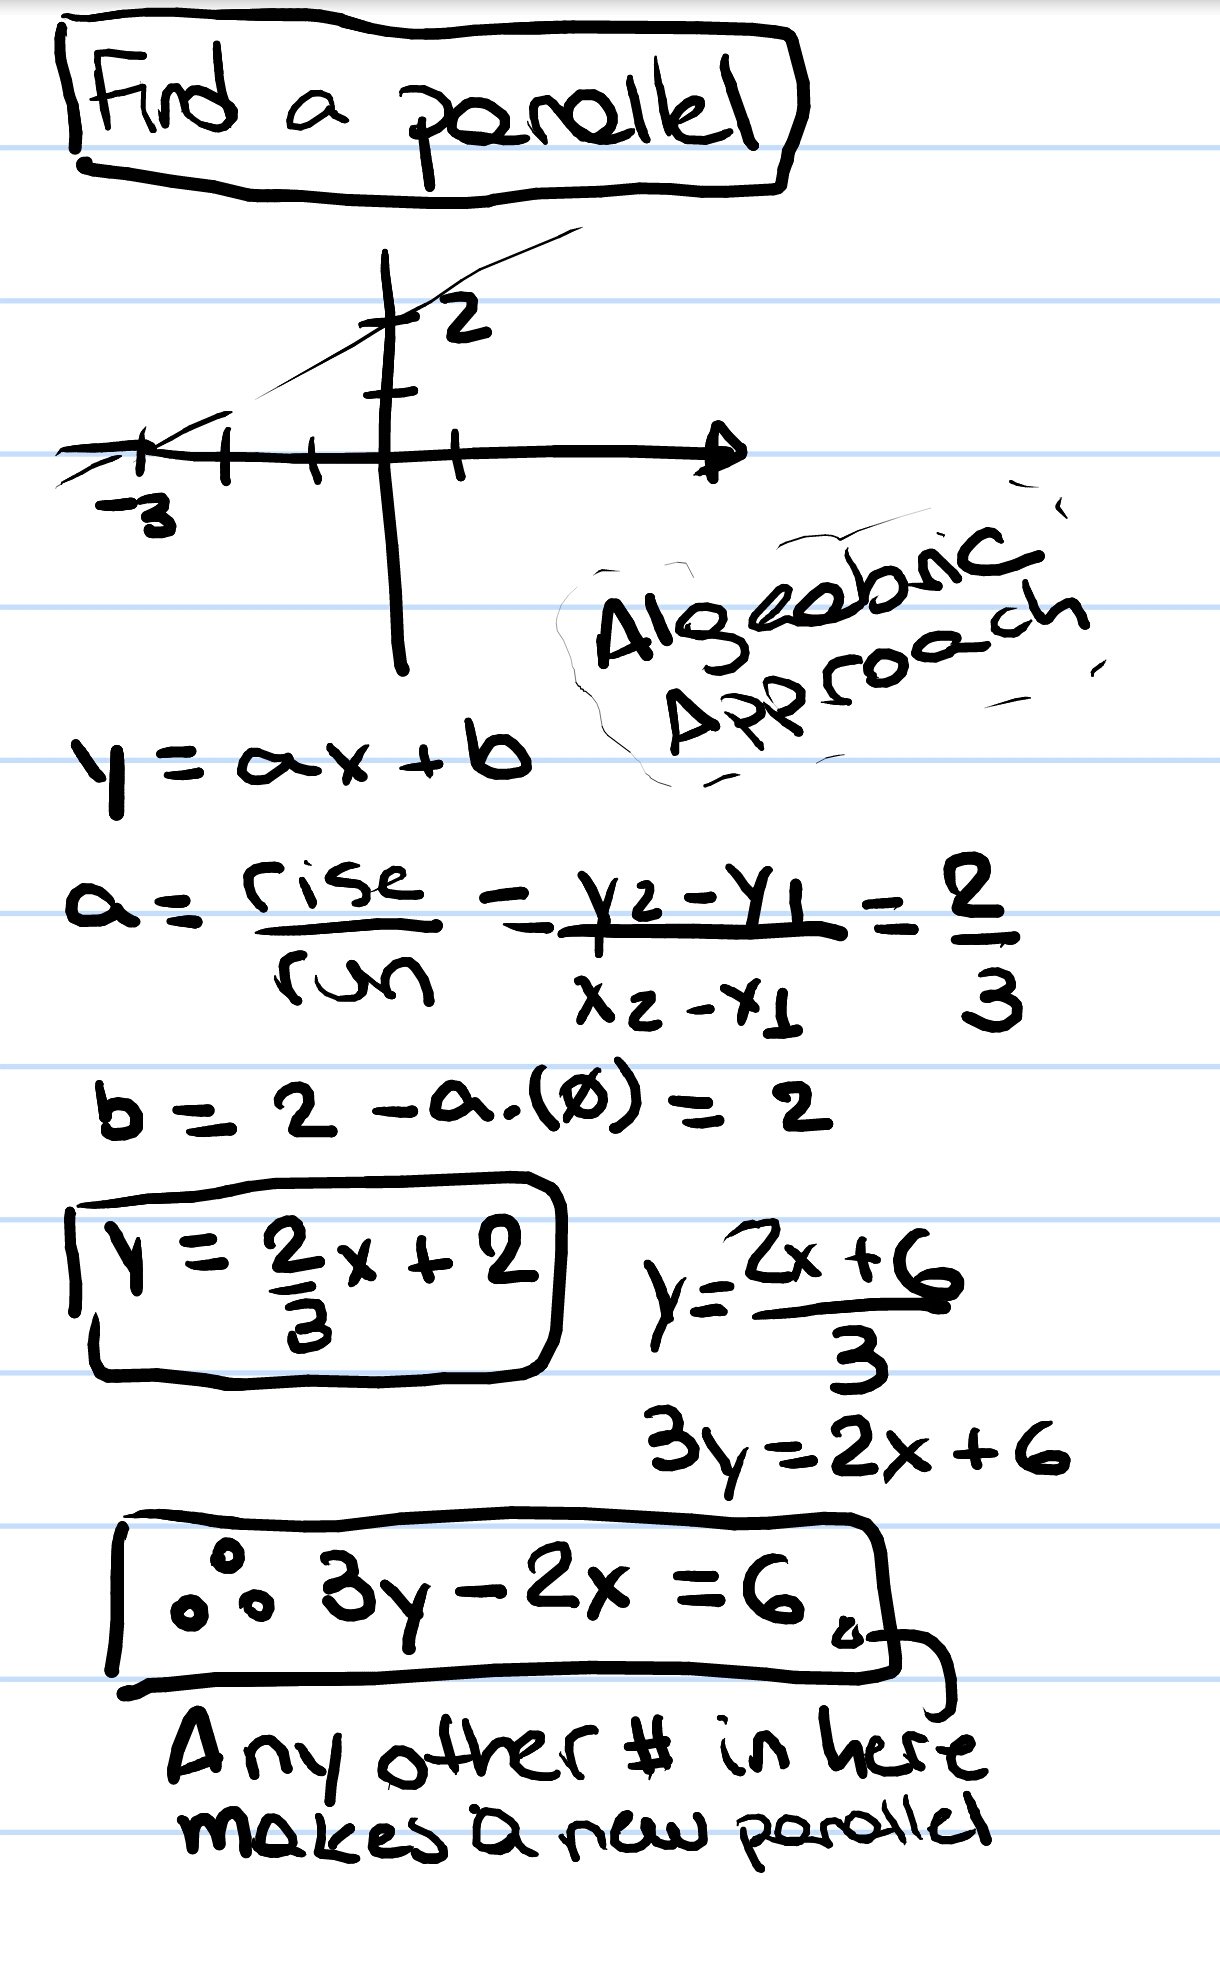 Find a parallel
2
-3
Algeabric
Approach
y = ax + b
a = rise/run = y2 - y1/x2 - x1 = 2/3
b = 2 - a.(ø) = 2
y = 2/3 x + 2
y = 2x + 6/3
3y = 2x + 6
∴ 3y - 2x = 6.
Any other # in here
makes a new parallel